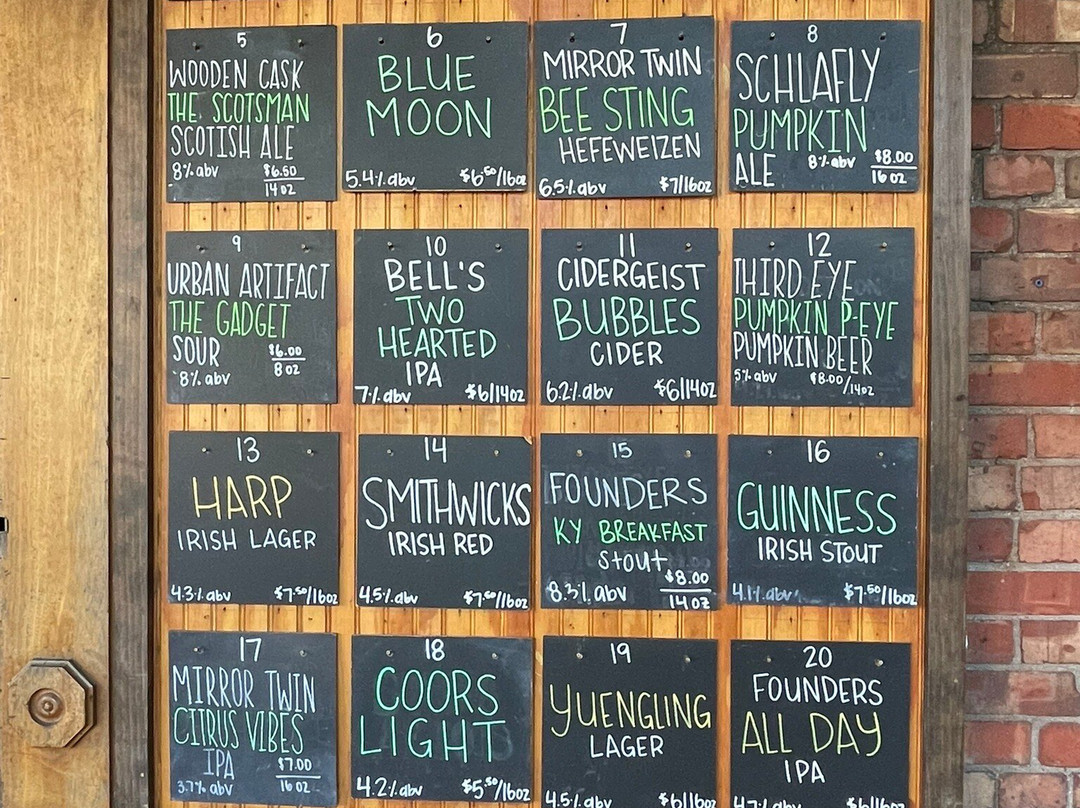 5
WOODEN CASK
THE SCOTSMAN
SCOTISH ALE
8% abv $6.50
14 OZ
6
BLUE
MOON
5.4% abv $6.50/16oz
7
MIRROR TWIN
BEE STING
HEFEWEIZEN
6.5% abv $7/16oz
8
SCHLAFLY
PUMPKIN
ALE 8% abv $8.00
16 OZ
9
URBAN ARTIFACT
THE GADGET
SOUR $6.00
8% abv 8 OZ
10
BELL'S
TWO
HEARTED
IPA
7% abv $6/14oz
11
CIDERGEIST
BUBBLES
CIDER
6.2% abv $6/14oz
12
THIRD EYE
PUMPKIN P-EYE
PUMPKIN BEER
5% abv $8.00/14oz
13
HARP
IRISH LAGER
4.3% abv $7.50/16oz
14
SMITHWICKS
IRISH RED
4.5% abv $7.50/16oz
15
FOUNDERS
KY BREAKFAST
stout
8.3% abv $8.00
14 OZ
16
GUINNESS
IRISH STOUT
4.1% abv $7.50/16oz
17
MIRROR TWIN
CITRUS VIBES
IPA $7.00
3.7% abv 16 OZ
18
COORS
LIGHT
4.2% abv $5.50/16oz
19
YUENGLING
LAGER
4.5% abv $6/16oz
20
FOUNDERS
ALL DAY
IPA
4.7% abv $6/16oz